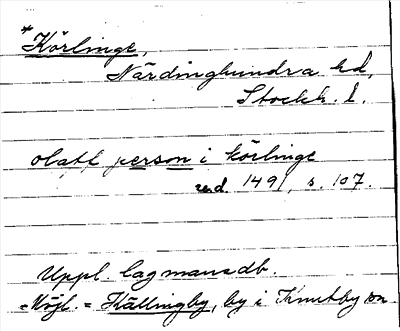 *Körlinge,
Närdinghundra hd,
Stockh. l.
olaff person i körlinge
1491, s. 107.
Uppl. lagmansdb.
= Möjl. = Källingby, by i Knutby sn